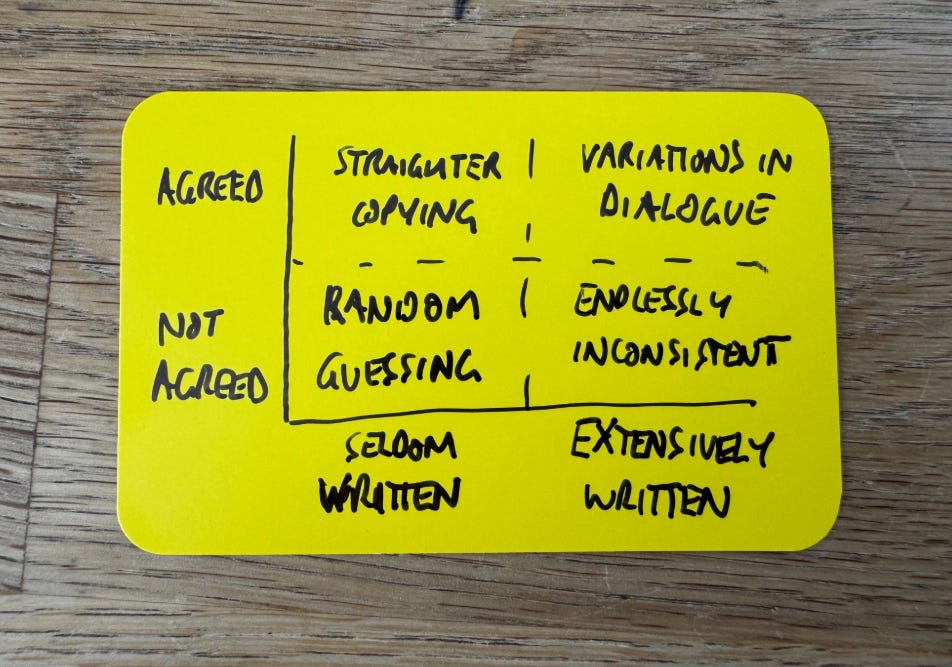 AGREED
STRAIGHTER COPYING
VARIATIONS IN DIALOGUE
NOT AGREED
RANDOM GUESSING
ENDLESSLY INCONSISTENT
SELDOM WRITTEN
EXTENSIVELY WRITTEN